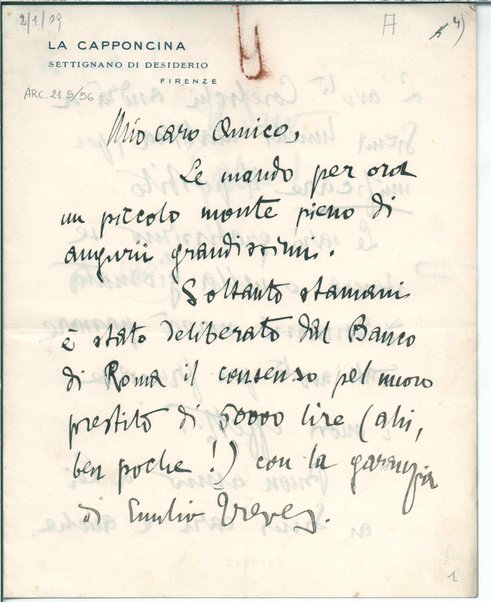 2/1/09
A
4)
LA CAPPONCINA
SETTIGNANO DI DESIDERIO
FIRENZE
ARC. 21.5/56
Mio caro Amico,
Le mando per ora
un piccolo monte pieno di
augurii grandissimi.
Soltanto stamani
è stato deliberato dal Banco
di Roma il consenso pel nuovo
prestito di 50000 lire (ahi,
ben poche!) con la garanzia
di Emilio Treves.
1